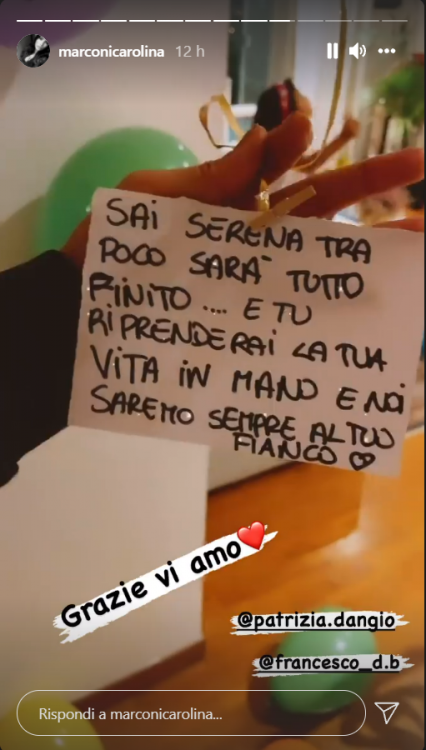 marconicarolina 12 h
SAI SERENA TRA
POCO SARA' TUTTO
FINITO .... E TU
RIPRENDERAI LA TUA
VITA IN MANO E NOI
SAREMO SEMPRE AL TUO
FIANCO ♡
Grazie vi amo❤️
@patrizia.dangio
@francesco_d.b
Rispondi a marconicarolina...